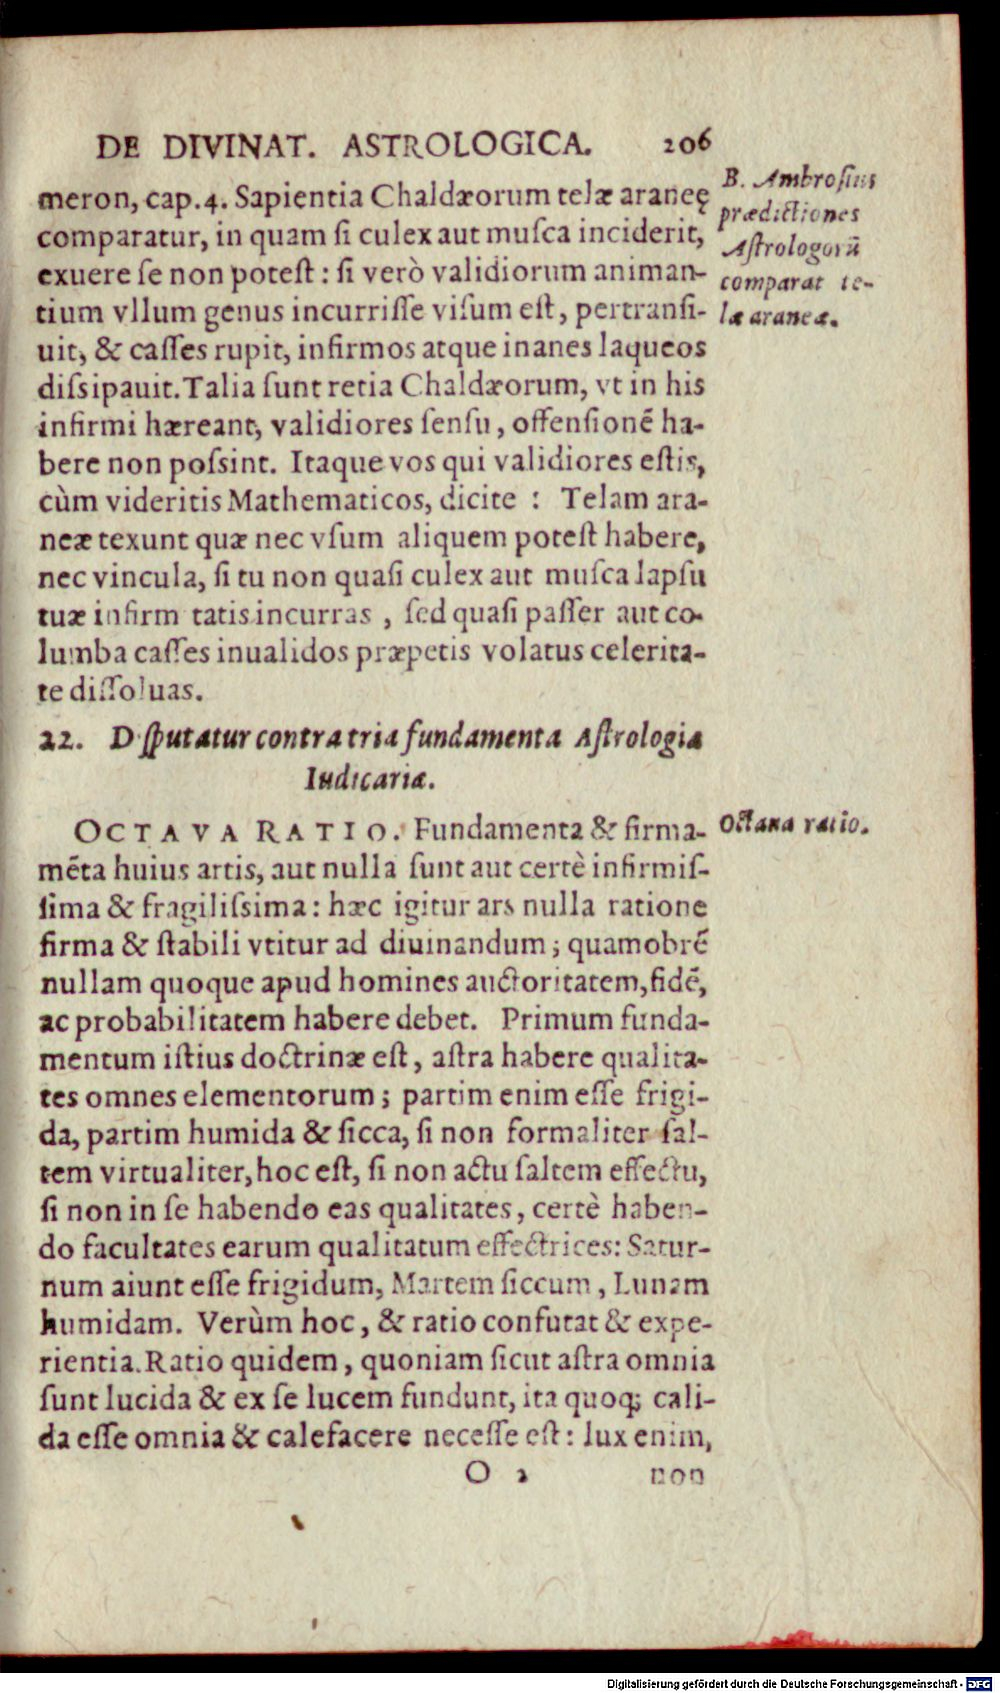 DE DIVINAT. ASTROLOGICA. 206
meron, cap.4. Sapientia Chaldæorum telæ araneę
comparatur, in quam ſi culex aut muſca inciderit,
exuere ſe non poteſt: ſi verò validiorum animan-
tium vllum genus incurriſſe viſum eſt, pertranſi-
uit, & caſſes rupit, infirmos atque inanes laqueos
diſsipauit. Talia ſunt retia Chaldæorum, vt in his
infirmi hæreant, validiores ſenſu, offenſionẽ ha-
bere non poſsint. Itaque vos qui validiores eſtis,
cùm videritis Mathematicos, dicite: Telam ara-
neæ texunt quæ nec vſum aliquem poteſt habere,
nec vincula, ſi tu non quaſi culex aut muſca lapſu
tuæ infirm tatis incurras, ſed quaſi paſſer aut co-
lumba caſſes inualidos præpetis volatus celerita-
te diſſoluas.
B. Ambroſius
prædictiones
Aſtrologorũ
comparat te-
læ araneæ.
22. Dſputatur contra tria fundamenta Aſtrologia
Iudicariæ.
OCTAVA RATIO. Fundamenta & firma-
mẽta huius artis, aut nulla ſunt aut certè infirmiſ-
ſima & fragiliſsima: hæc igitur ars nulla ratione
firma & ſtabili vtitur ad diuinandum; quamobrẽ
nullam quoque apud homines auctoritatem, fidẽ,
ac probabilitatem habere debet. Primum funda-
mentum iſtius doctrinæ eſt, aſtra habere qualita-
tes omnes elementorum; partim enim eſſe frigi-
da, partim humida & ſicca, ſi non formaliter ſal-
tem virtualiter, hoc eſt, ſi non actu ſaltem effectu,
ſi non in ſe habendo eas qualitates, certè haben-
do facultates earum qualitatum effectrices: Satur-
num aiunt eſſe frigidum, Martem ſiccum, Lunam
humidam. Verùm hoc, & ratio confutat & expe-
rientia. Ratio quidem, quoniam ſicut aſtra omnia
ſunt lucida & ex ſe lucem fundunt, ita quoq; cali-
da eſſe omnia & calefacere neceſſe eſt: lux enim,
Octaua ratio.
O 2 non
Digitalisierung gefördert durch die Deutsche Forschungsgemeinschaft - DFG